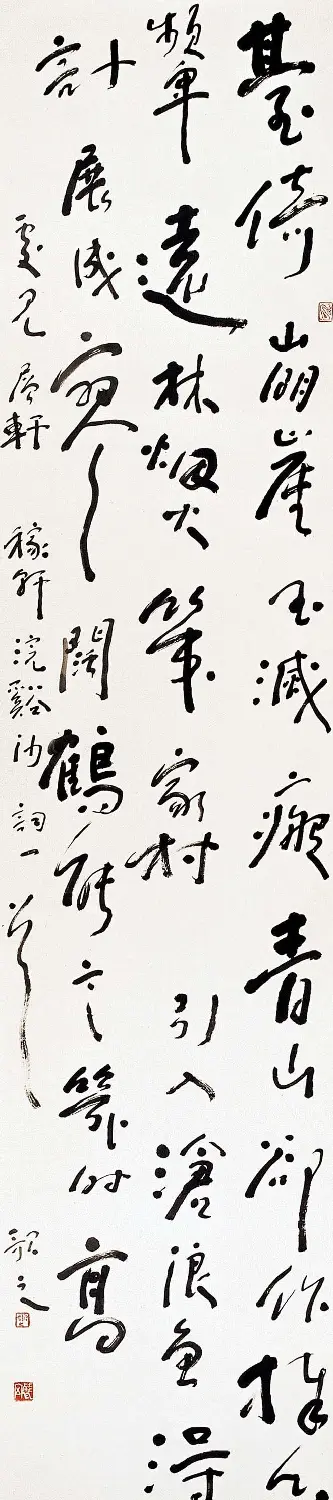 臺倚崩崖玉滅瘢青山卻作捧心
顰遠林烟火幾家村引入滄浪魚得
計展成寥闊鶴能言幾时高
處見層軒 稼軒浣谿沙詞一首 之